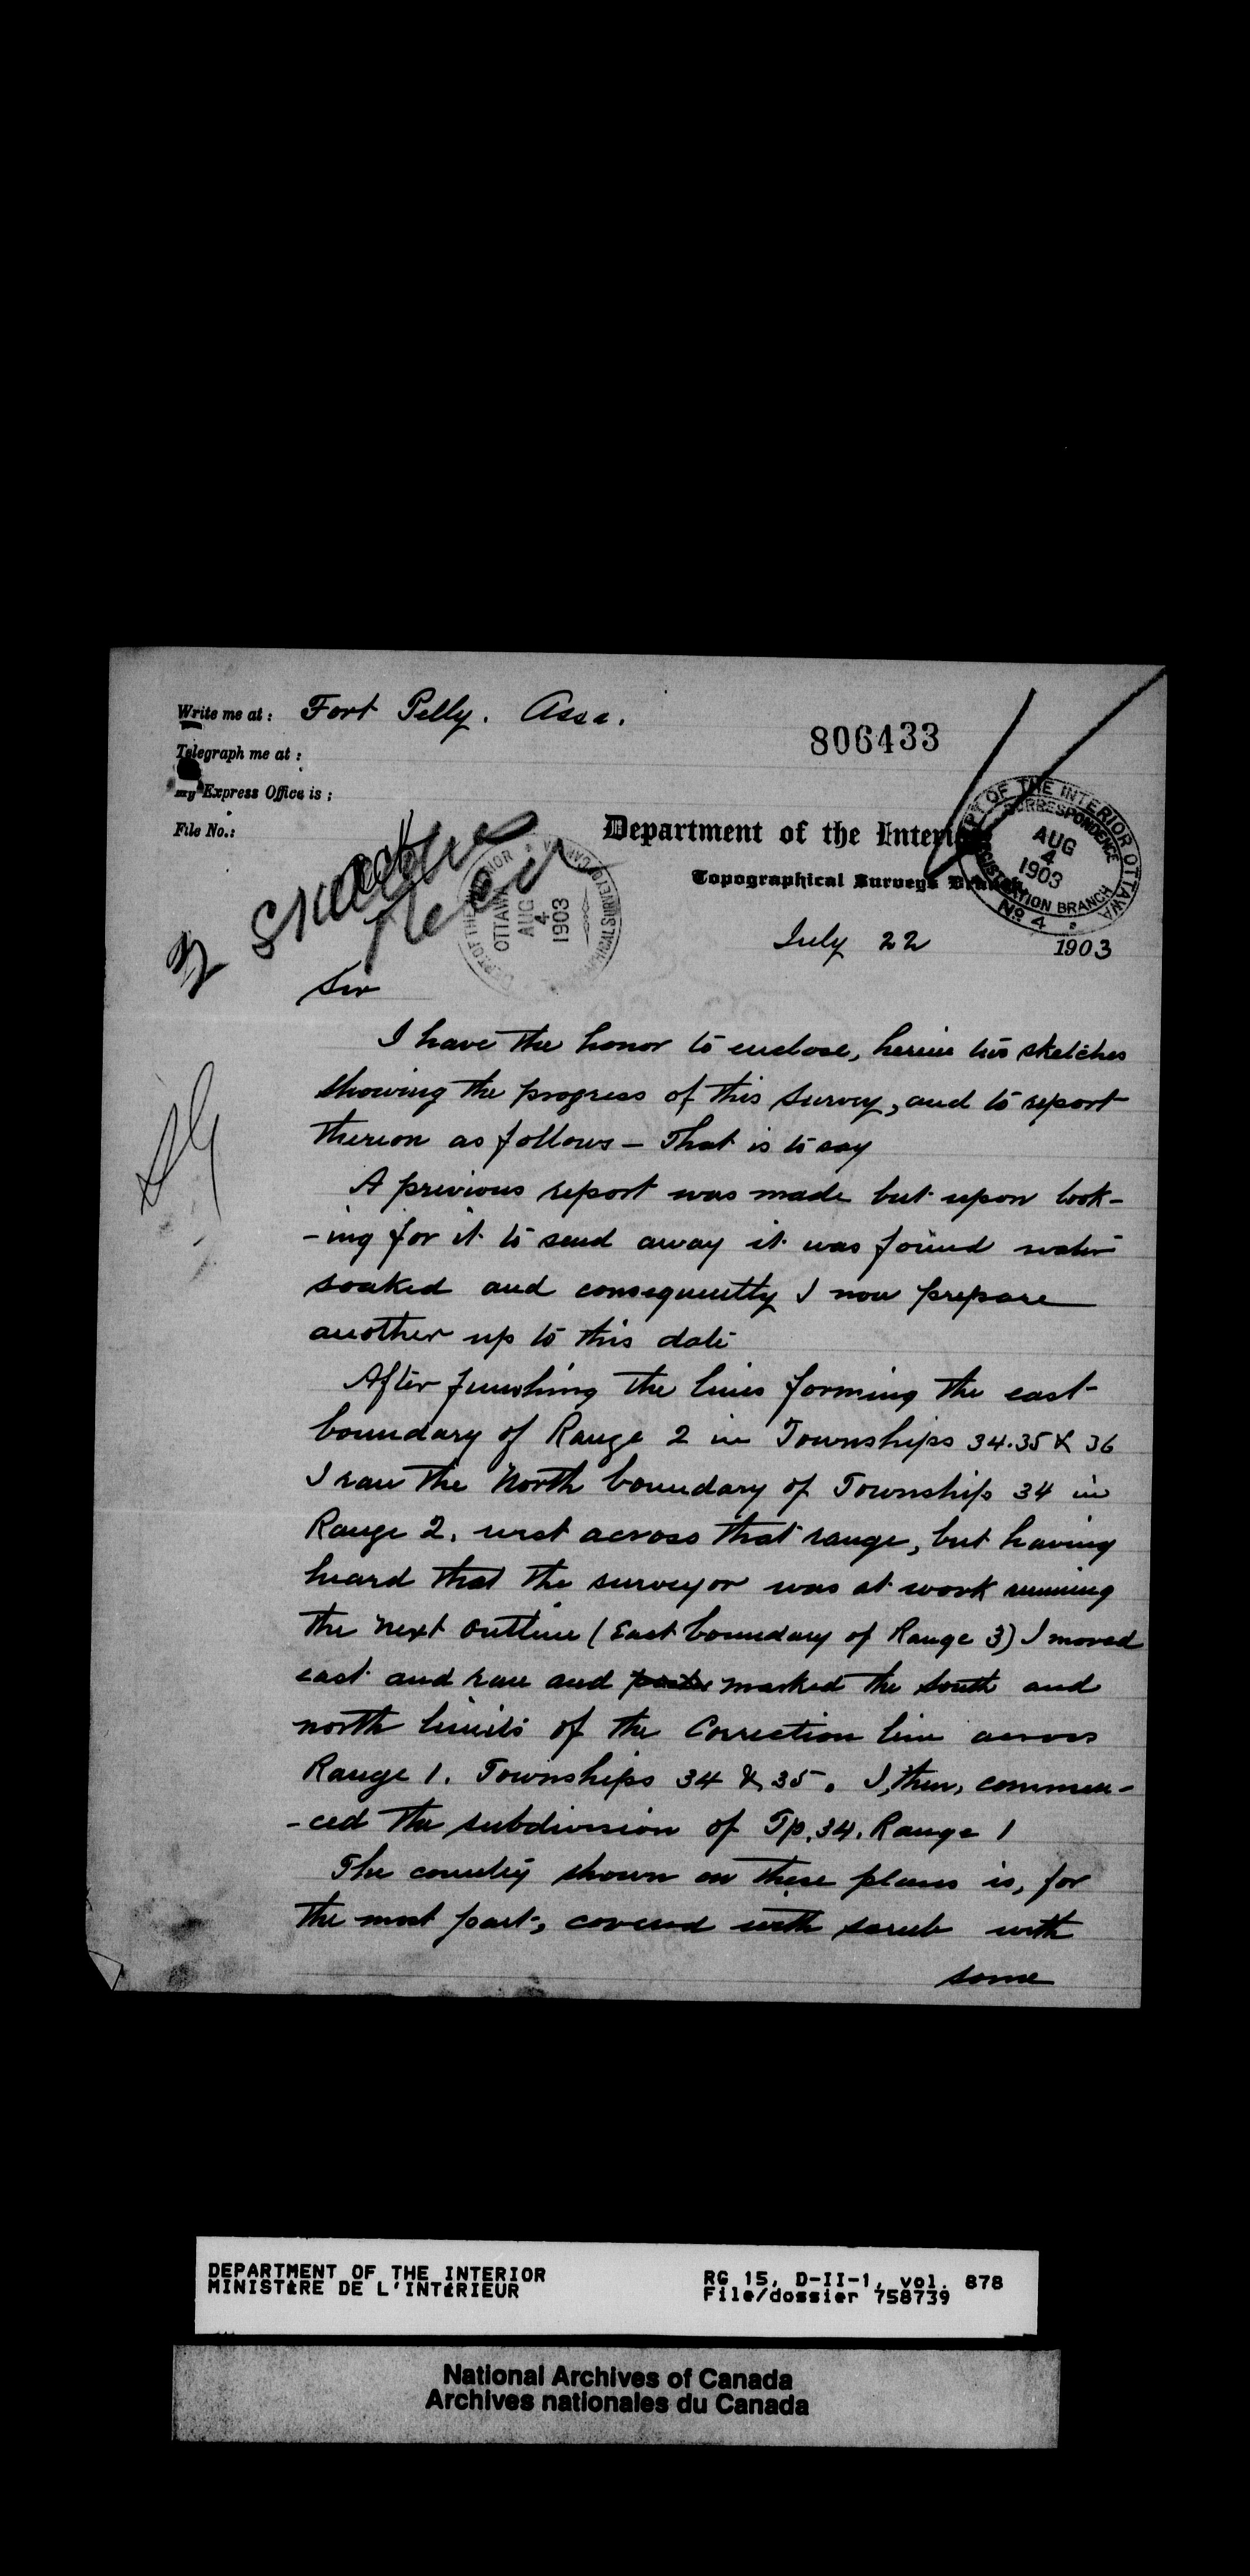 Write me at : Fort Pelly. Assa.
806433
Telegraph me at :
my Express Office is ;
File No.:
Department of the Interior
Topographical Surveys Branch
DEPT OF THE INTERIOR OTTAWA
CORRESPONDENCE
AUG
4
1903
REGISTRATION BRANCH
No 4
OTTAWA
AUG
4
1903
July 22 1903
Sir
I have the honor to enclose, herein two sketches
showing the progress of this survey, and to report
thereon as follows – That is to say
A previous report was made but upon look-
-ing for it to send away it was found water
soaked and consequently I now prepare
another up to this date
After finishing the lines forming the east
boundary of Range 2 in Townships 34.35 & 36
I ran the North boundary of Township 34 in
Range 2. west across that range, but having
heard that the surveyor was at work running
the next outline (East boundary of Range 3) I moved
east and ran and marked the south and
north limits of the Correction line across
Range 1. Townships 34 & 35. I, then, commen-
-ced the subdivision of Tp. 34. Range 1
The country shown on these plans is, for
the most part, covered with scrub with
some
DEPARTMENT OF THE INTERIOR
MINISTÈRE DE L'INTÉRIEUR
RG 15, D-II-1, vol. 878
File/dossier 758739
National Archives of Canada
Archives nationales du Canada